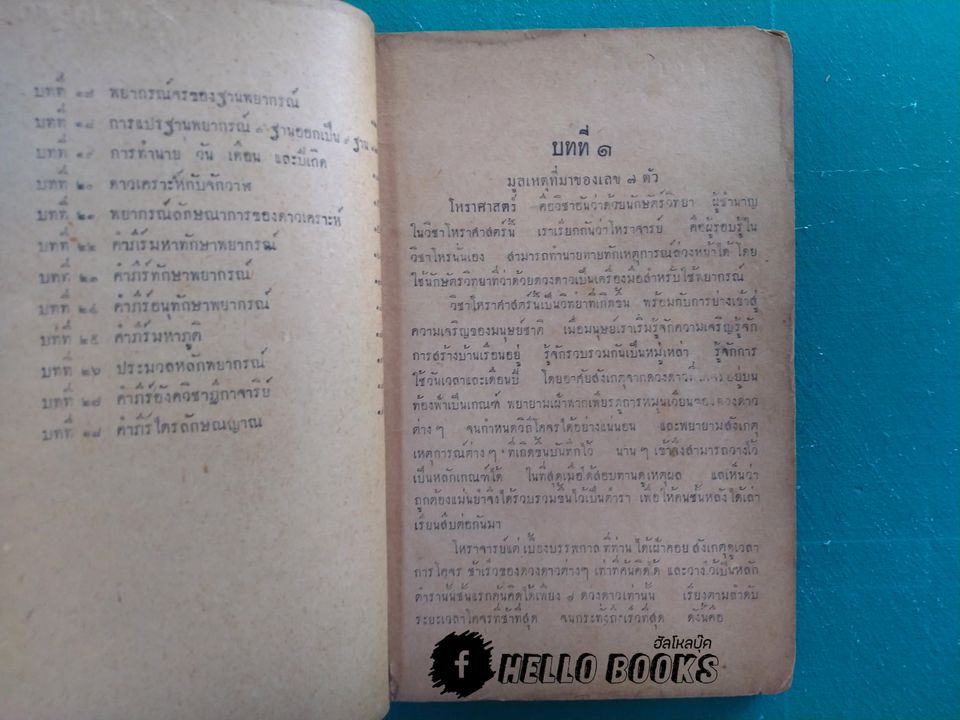 บทที่ ๑๗ พยากรณ์จรของฐานพยากรณ์
บทที่ ๑๘ การแปรฐานพยากรณ์ ๓ ฐานออกเป็น ๙ ฐาน
บทที่ ๑๙ การทำนาย วัน เดือน และปีเกิด
บทที่ ๒๐ ดาวเคราะห์กับจักวาฬ
บทที่ ๒๑ พยากรณ์ลักษณาการของดาวเคราะห์
บทที่ ๒๒ คำภีร์มหาทักษาพยากรณ์
บทที่ ๒๓ คำภีร์ทักษาพยากรณ์
บทที่ ๒๔ คำภีร์อนุทักษาพยากรณ์
บทที่ ๒๕ คำภีร์มหาภูติ
บทที่ ๒๖ ประมวลหลักพยากรณ์
บทที่ ๒๗ คำภีร์องควิชาฎีกาจารีย์
บทที่ ๒๘ คำภีร์ไตรลักษณญาณ
บทที่ ๑
มูลเหตุที่มาของเลข ๗ ตัว
โหราศาสตร์ คือวิชาอันว่าด้วยนักษัตร์วิทยา ผู้ชำนาญ
ในวิชาโหราศาสตร์นี้ เราเรียกกันว่าโหราจารย์ คือผู้รอบรู้ใน
วิชาโหรนั่นเอง สามารถทำนายทายทักเหตุการณ์ล่วงหน้าได้ โดย
ใช้นักษัตริ์วิทยาที่ว่าด้วยดวงดาวเป็นเครื่องมือสำหรับใช้พยากรณ์
วิชาโหราศาสตร์นี้เป็นวิทยาที่เกิดขึ้น พร้อมกับการย่างเข้าสู่
ความเจริญของมนุษย์ชาติ เมื่อมนุษย์เราเริ่มรู้จักความเจริญรู้จัก
การสร้างบ้านเรือนอยู่ รู้จักรวบรวมกันเป็นหมู่เหล่า รู้จักการ
ใช้วันเวลาและเดือนปี โดยอาศัยสังเกตุจากดวงดาวที่โคจรอยู่บน
ท้องฟ้าเป็นเกณฑ์ พยายามเฝ้าพากเพียรดูการหมุนเวียนของดวงดาว
ต่างๆ จนกำหนดวิถีโคจรได้อย่างแน่นอน และพยายามสังเกตุ
เหตุการณ์ต่างๆ ที่เกิดขึ้นบันทึกไว้ นานๆ เข้าจึงสามารถวางไว้
เป็นหลักเกณฑ์ได้ ในที่สุดเมื่อได้สอบทานดูเหตุผล และเห็นว่า
ถูกต้องแม่นยำจึงได้รวบรวมขึ้นไว้เป็นตำรา เพื่อให้คนชั้นหลังได้เล่า
เรียนสืบต่อกันมา
โหราจารย์แต่เบื้องบรรพกาล ที่ท่านได้เฝ้าคอยสังเกตุดูเวลา
การโคจร ช้าเร็วของดวงดาวต่างๆ เท่าที่ค้นคิดได้ และวางไว้เป็นหลัก
ตำรานั้นชั้นแรกค้นคิดได้เพียง ๗ ดวงดาวเท่านั้น เรียงตามลำดับ
ระยะเวลาโคจรที่ช้าที่สุด จนกระทั่งถึงเร็วที่สุด ดังนี้คือ
ฮัลโหลบุ๊ค
HELLO BOOKS